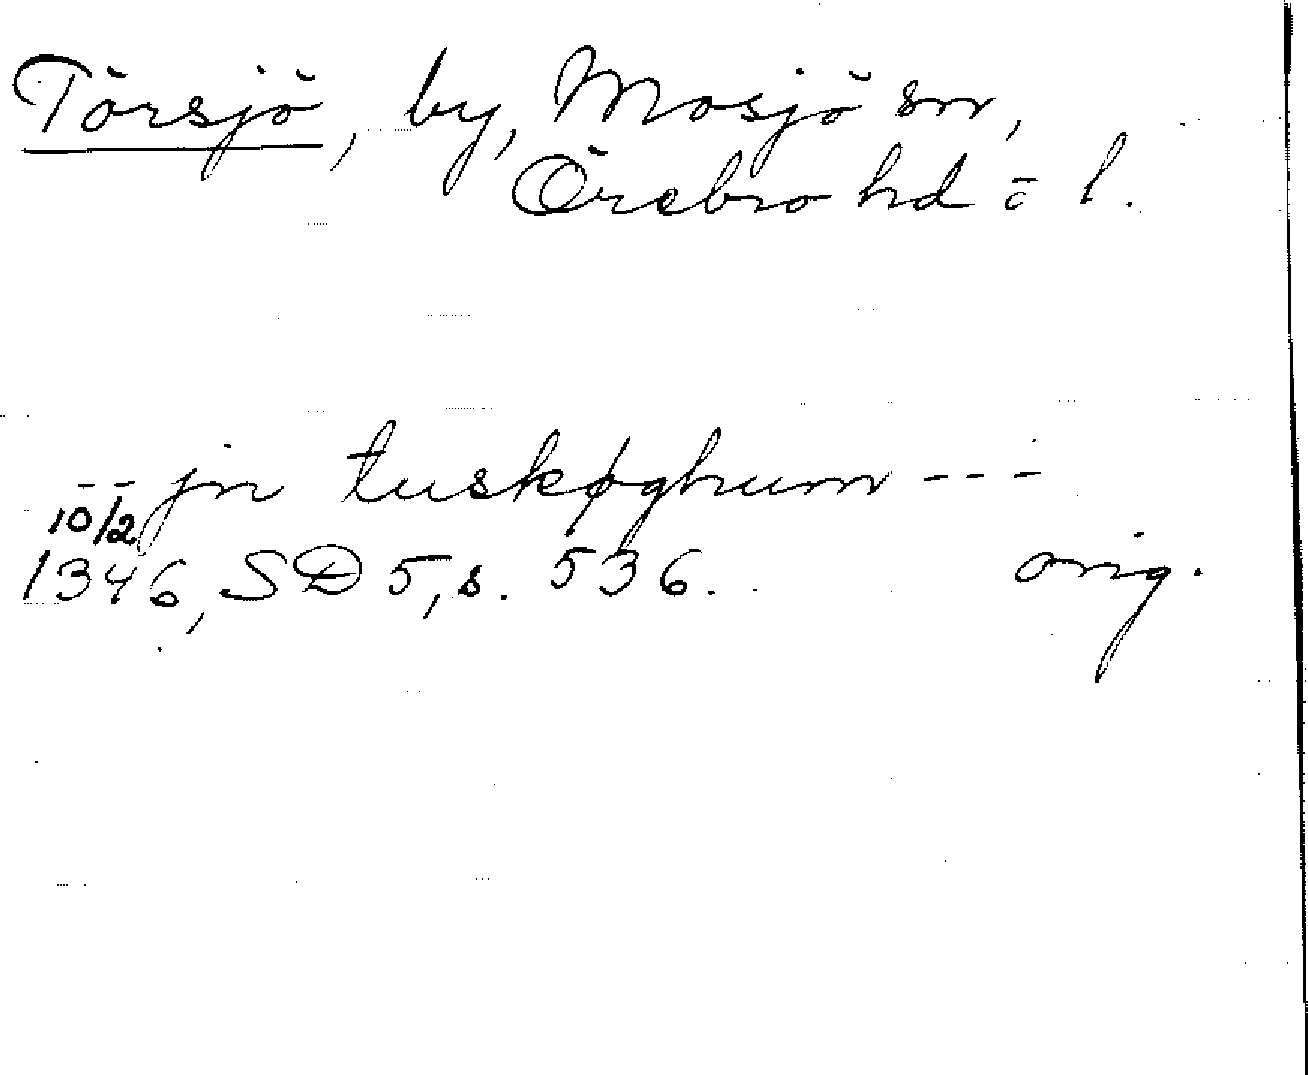 Törsjö, by, Mosjö sn,
Örebro hd o l.
-- jn tuskøghum ---
10/2
1346, SD 5, s. 536. orig.